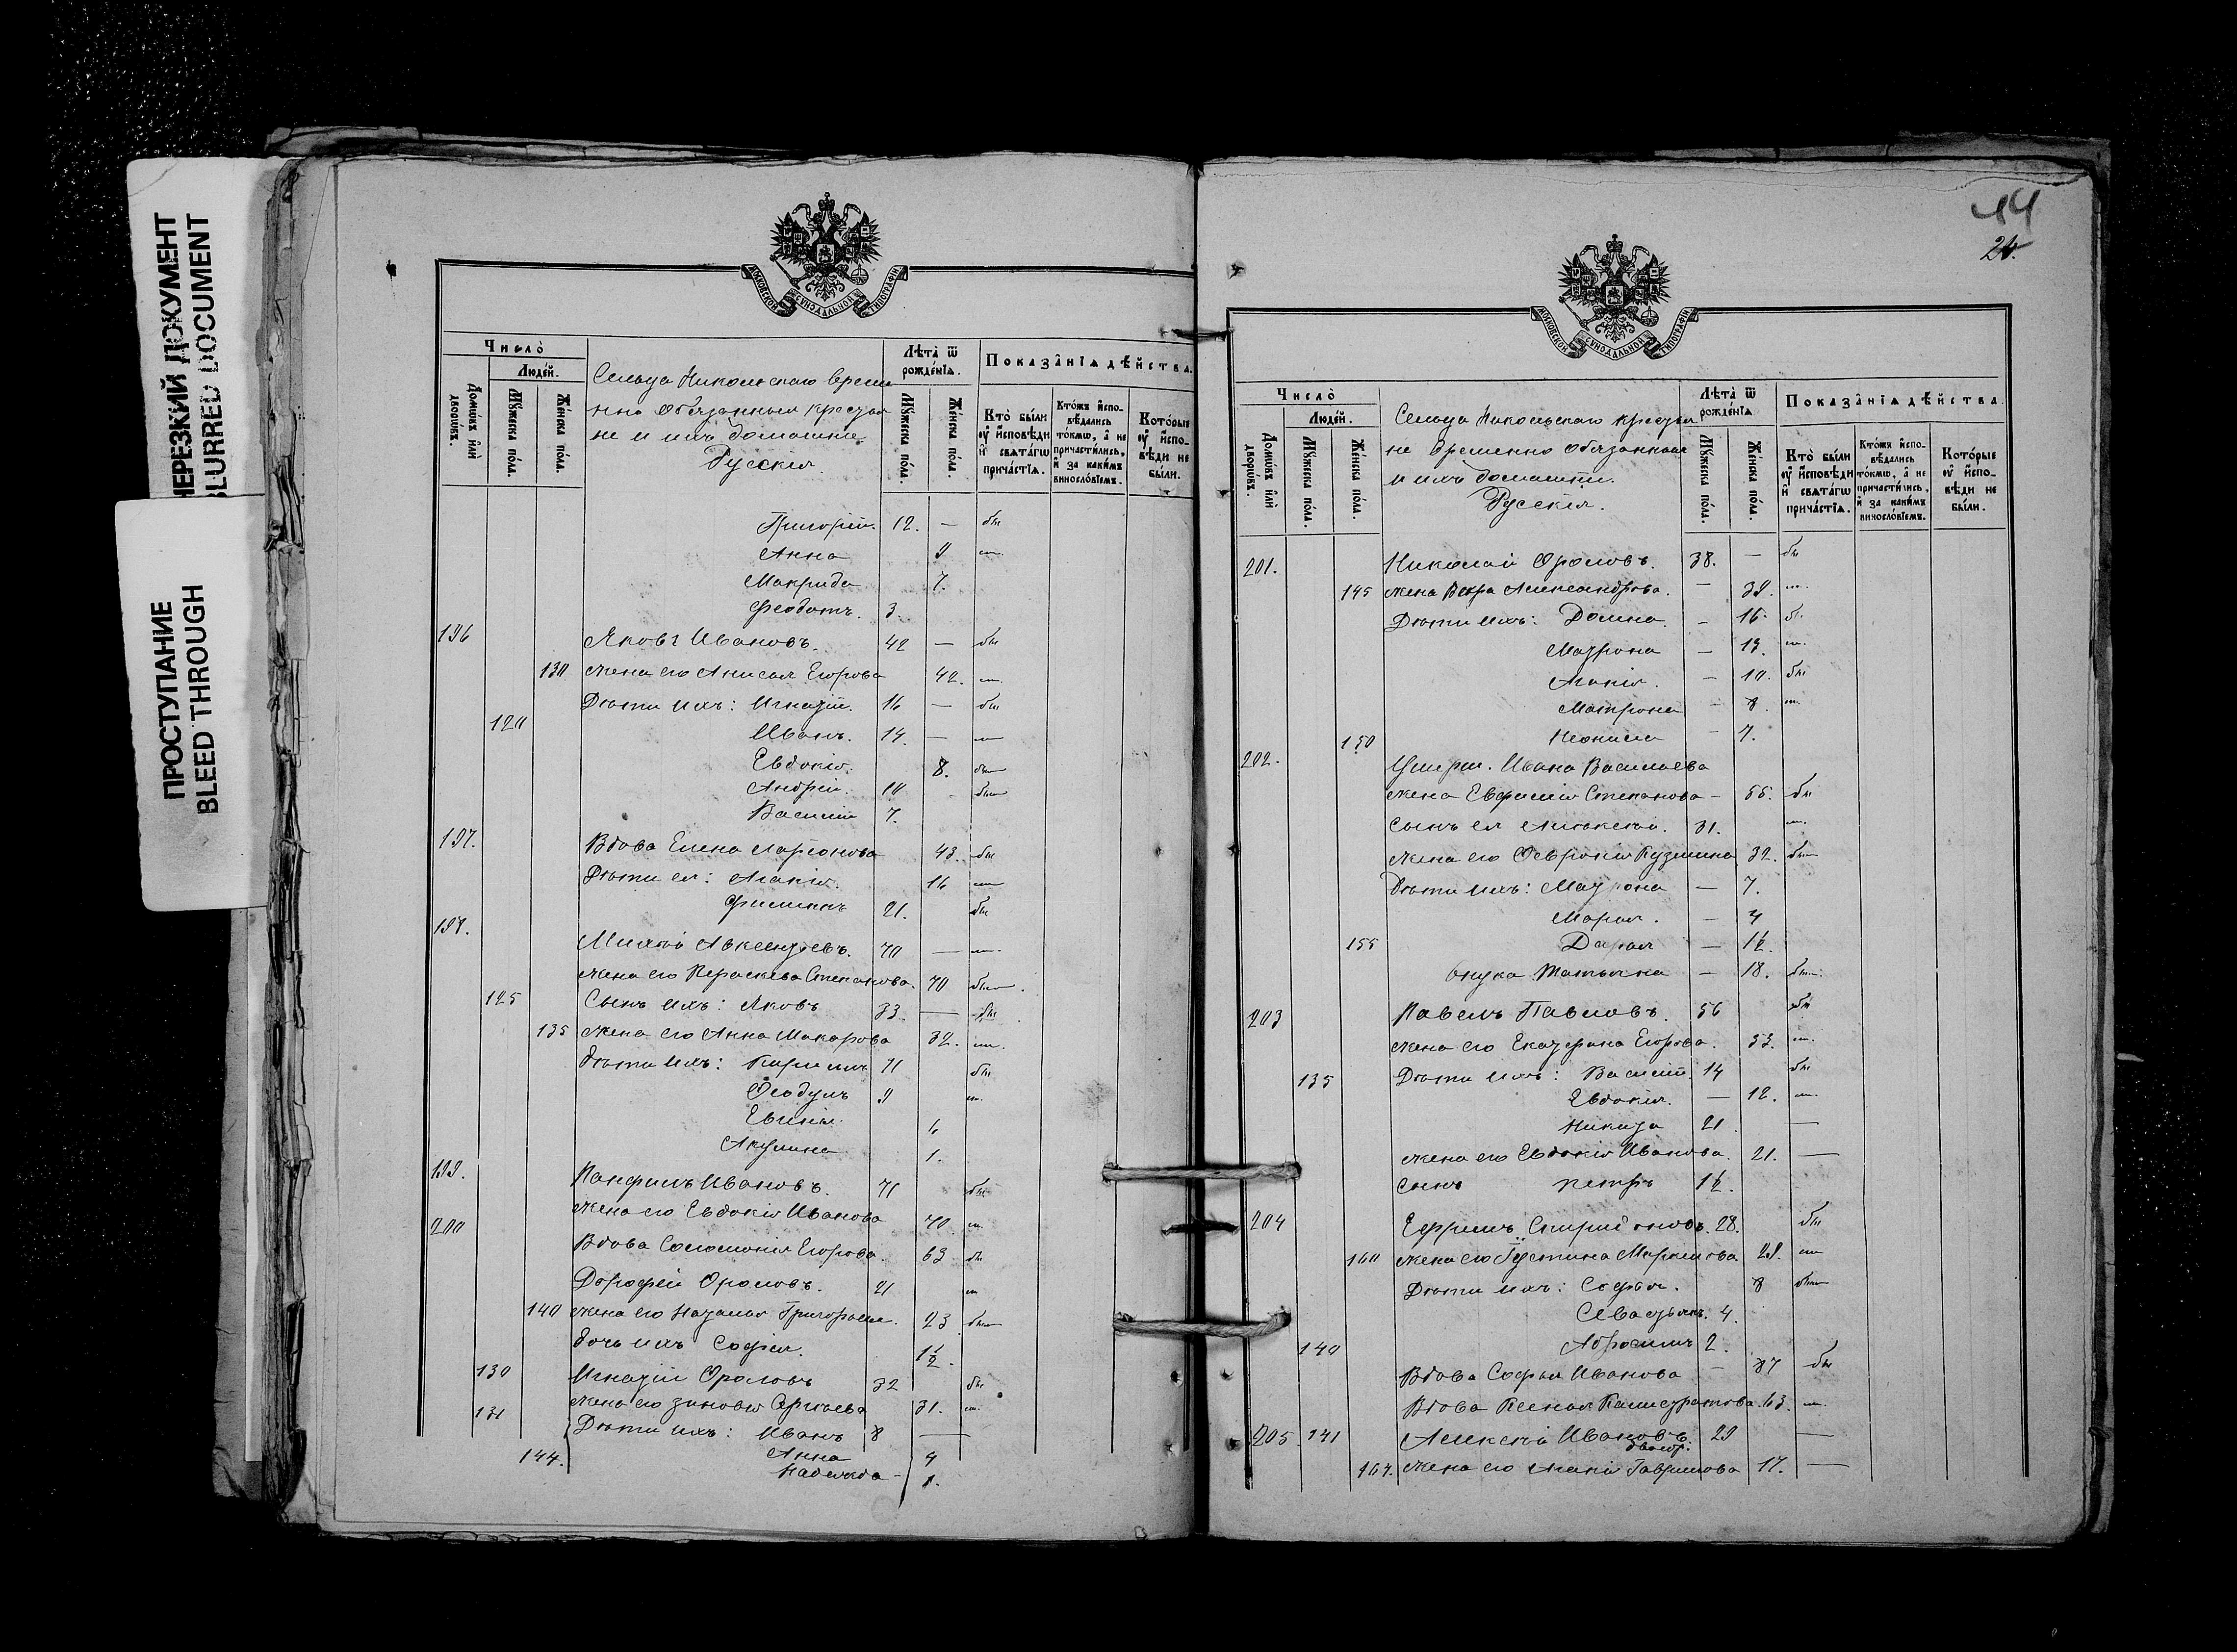 НЕРЕЗКИЙ ДОКУМЕНТ
BLURRED DOCUMENT
ПРОСТУПАНИЕ
BLEED THROUGH
МОСКОВСКОЙ СѴНОДАЛЬНОЙ ТИПОГРАФІИ
Число̀
Людей.
Домѡвъ илѝ дворѡвъ.
Мꙋжеска пола.
Женска пола.
Сельца Никольскаго време
нно обязанныя крестья
не и ихъ домашніе
Русскія.
Лѣта̀ ѿ рожденїѧ.
Мꙋжеска пола.
Женска пола.
Показанїѧ дѣйства.
Кто̀ были ᲂу҆ исповѣди и҆ свѧтагѡ причастїѧ.
Ктожъ исповѣдались токмѡ, а҆ не причастились, и҆ за какимъ винословїемъ.
Которые ᲂу҆ исповѣди не были.
Григорій. 12. — бы
Анна 9
Макрида 7.
Феодотъ. 3.
196 Яковъ Ивановъ. 42 — бы
130 жена его Анисья Егорова 42.
Дѣти ихъ: Игнатій. 16 — бы
120 Иванъ. 14. —
Евдокія. 8.
Андрей. 10
Василій 7.
197. Вдова Елена Ларіонова 43. бы
Дѣти ея: Агафія. 16
Филиппъ 21. бы
198. Михей Авксентьевъ. 70 —
жена его Параскева Степанова. 70
125 Сынъ ихъ: Яковъ 33. — бы
135 жена его Анна Макарова 32.
дѣти ихъ: Кириллъ 11 бы
Ѳеодулъ 9
4
Акулина 1.
199. Панфилъ Ивановъ. 71 бы
жена его Евдокія Иванова 70.
200 Вдова Соломонія Егорова. 63 бы
Дорофей Фроловъ. 21
140 жена его Наталья Григорьева. 23
дочь ихъ Софія. 1½.
130 Игнатій Фроловъ 32 бы
жена его Зиновья Сергѣева 31.
131 Дѣти ихъ: Иванъ 8 —
Анна 4
144. Надежда — 1.
44
24.
МОСКОВСКОЙ СѴНОДАЛЬНОЙ ТИПОГРАФІИ
Число̀
Людей.
Домѡвъ илѝ дворѡвъ.
Мꙋжеска пола.
Женска пола.
Сельца Никольскаго крестья
не временно обязанныя
и ихъ домашніе.
Русскія.
Лѣта̀ ѿ рожденїѧ
Мꙋжеска пола.
Женска пола.
Показанїѧ дѣйства.
Кто̀ были ᲂу҆ исповѣди и҆ свѧтагѡ причастїѧ.
Ктожъ исповѣдались токмѡ, а҆ не причастились, и҆ за какимъ винословїемъ.
Которые ᲂу҆ исповѣди не были.
201. Николай Фроловъ. 38. — бы
145 жена Александрова. — 39.
Дѣти ихъ: Домна. — 16. бы
Мавра — 13.
Агафія. — 10. бы
Матрона — 8.
150 Неонила — 7.
202. Умерш. Ивана Васильева
жена Евфимія Степанова — 55. бы
сынъ ея Алексѣй. 31.
жена его Февронія Кузмина 32.
Дѣти ихъ: — 7.
Марья. — 4
155 Дарья — 1½.
внука Татьяна — 18.
203 Павелъ Павловъ. 56 бы
жена его Екатерина Егорова. 53.
135 Дѣти ихъ: Василій. 14 бы
Евдокія. — 12.
Никита 21 —
жена его Евдокія Иванова. 21. —
сынъ Петръ 1½.
204 Ефремъ Спиридоновъ. 28. бы
160 жена его Устина Маркелова. 29.
Дѣти ихъ: Софья. 8
Севастьянъ. 4.
140 Абросимъ 2.
Вдова Софья Иванова — 37 бы
Вдова Ксенья Калистратова. 63.
205. 141 Алексѣй Ивановъ. 29 —
164. жена его Гаврилова 17. —